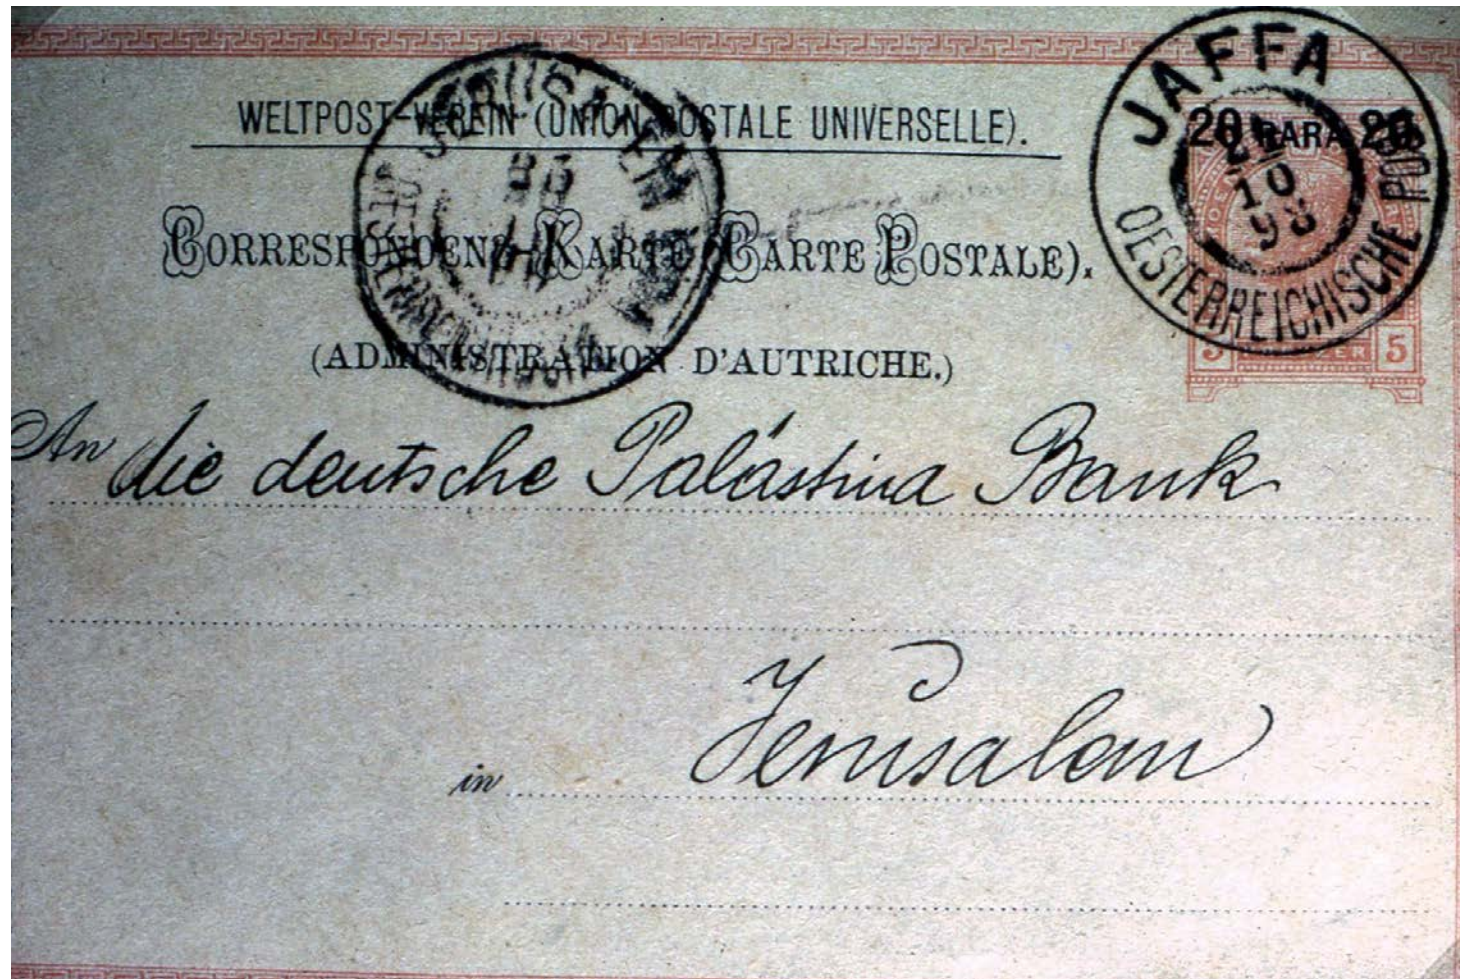 WELTPOST-VEREIN (UNION POSTALE UNIVERSELLE).
CORRESPONDENZ-KARTE (CARTE POSTALE).
(ADMINISTRATION D'AUTRICHE.)
JAFFA
10
OESTERREICHISCHE POST
20 PARA 20
5 5
JERUSALEM
An die deutsche Palästina Bank
in Jerusalem